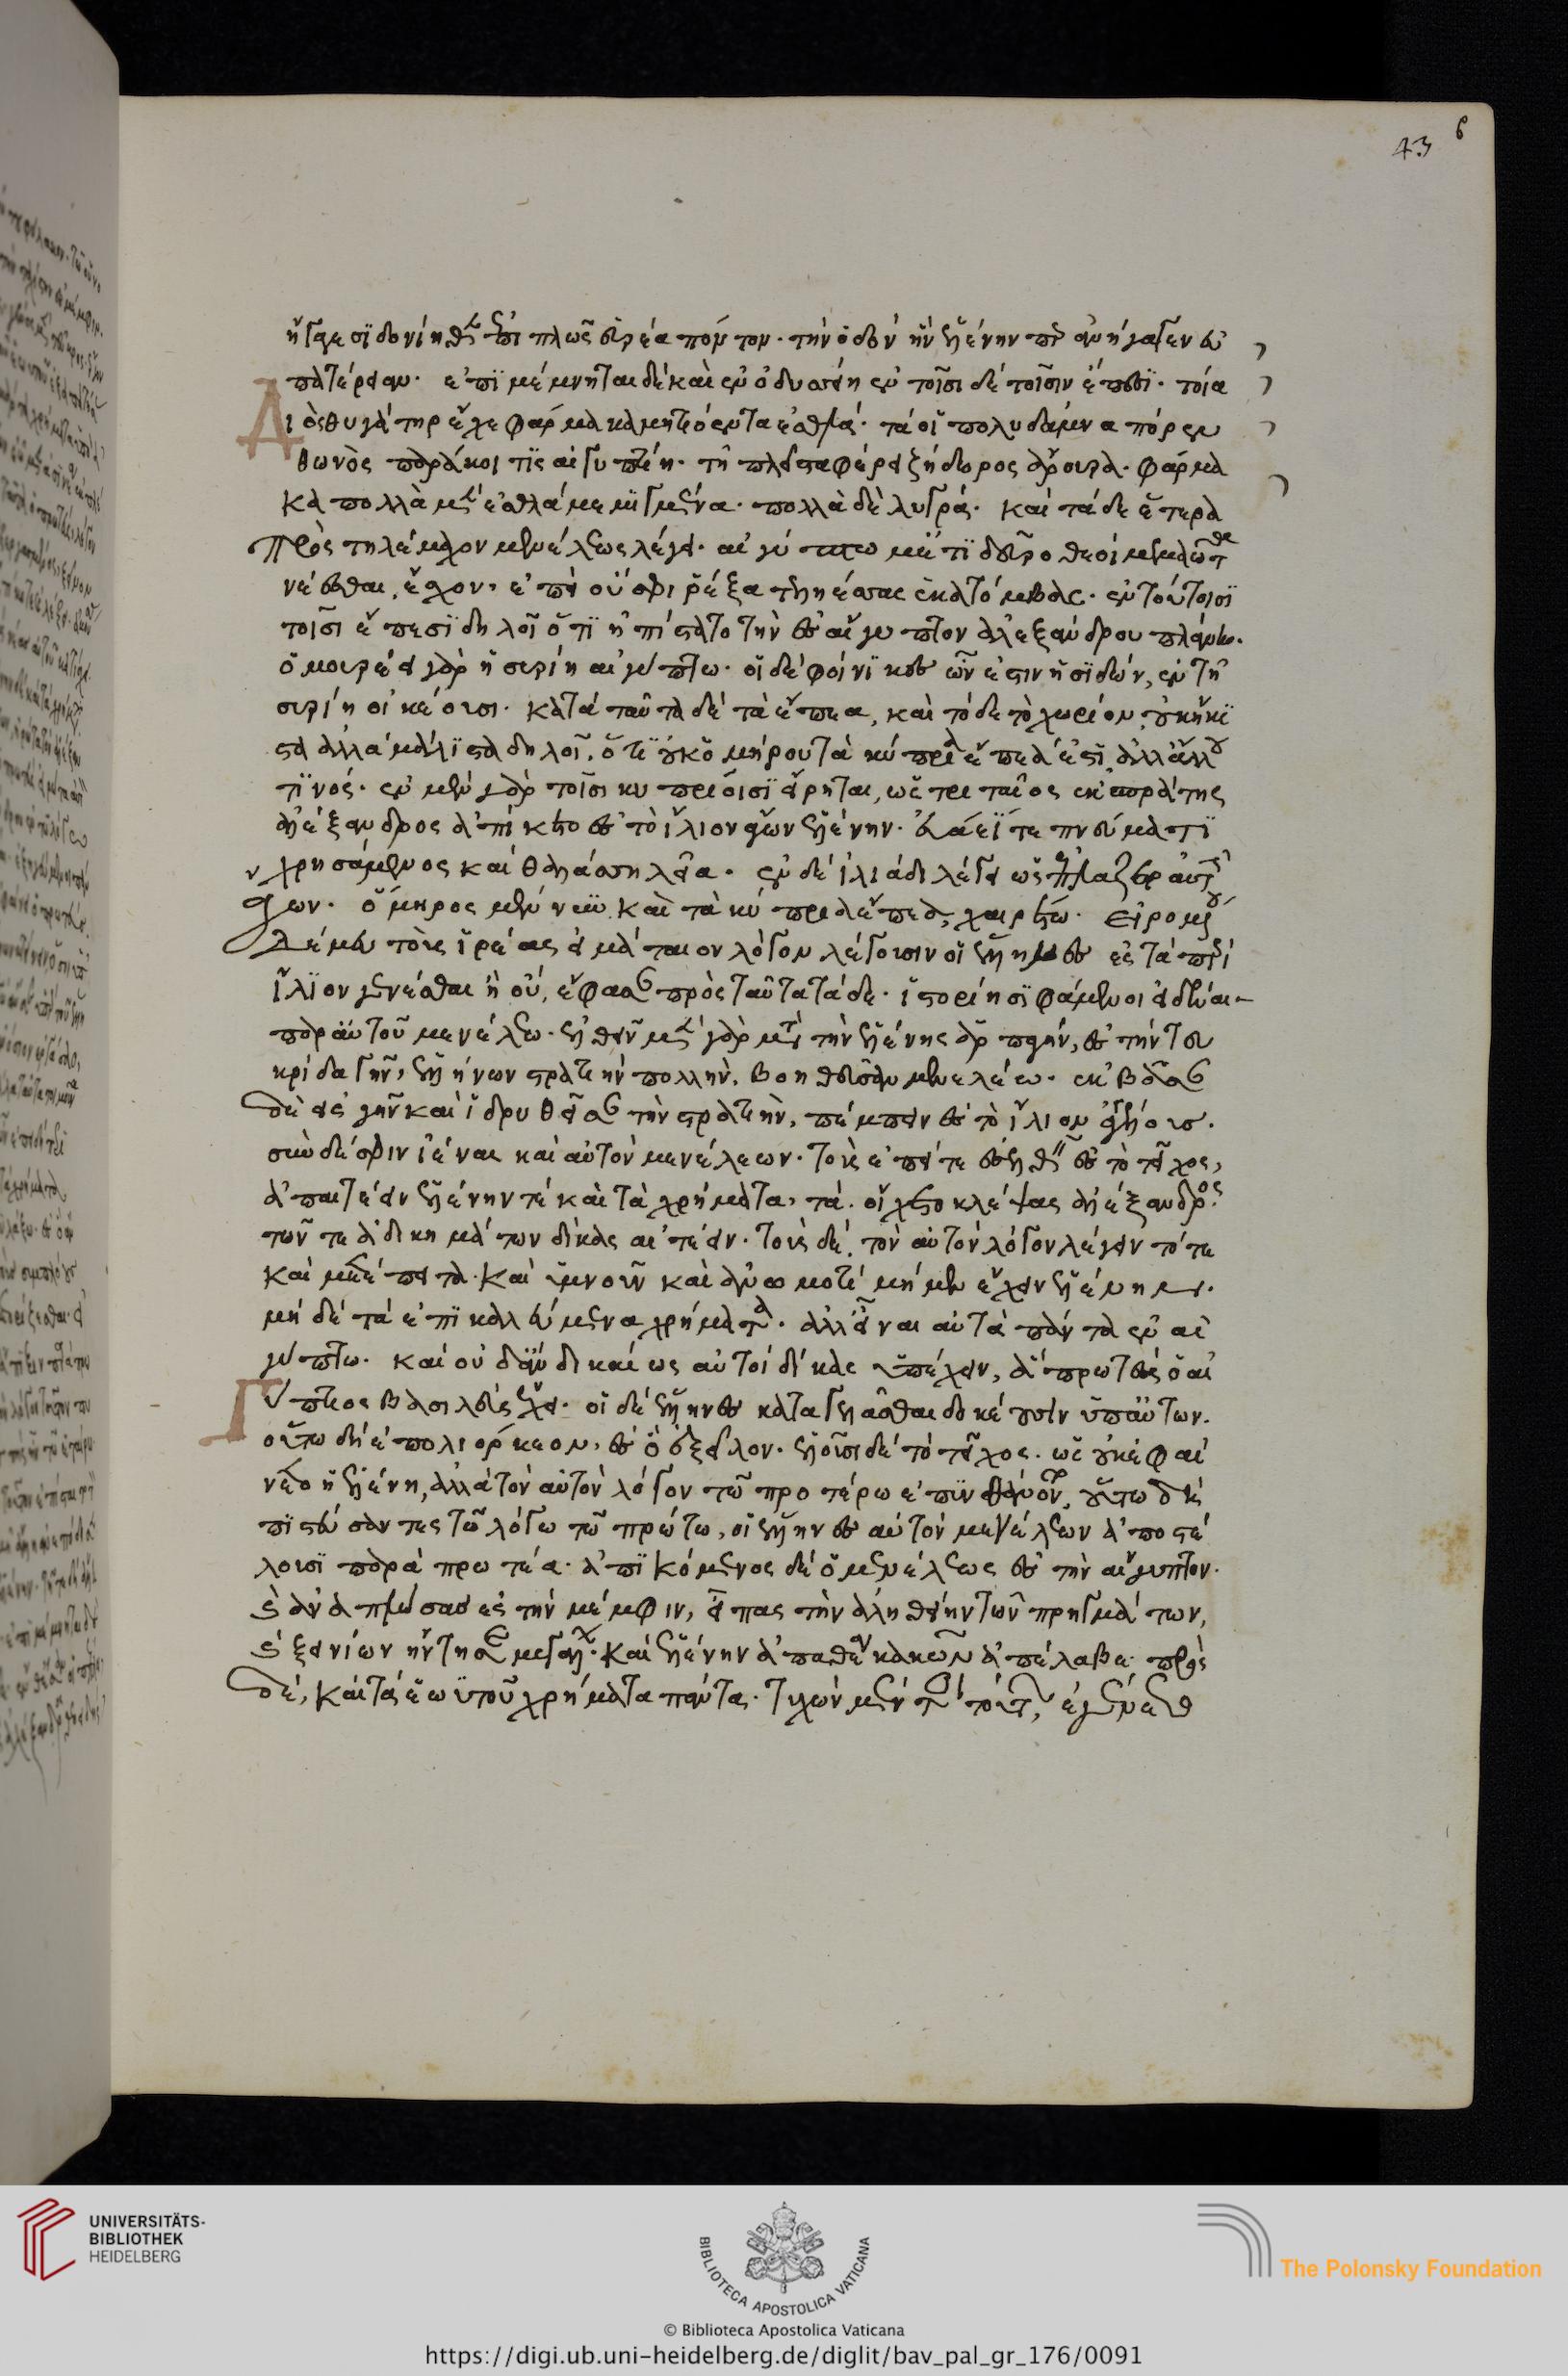 ἤγαγε σϊδονίηθεν ἐπι πλὼς εὐρέα πόντον· τὴν ὁδὸν ἣν ἑλένην περ ἀνήγαγεν εὐ
πατέρειαν· ἐπϊμέμνηται δὲ καὶ ἐν ὀδυσσείη ἐν τοῖσι δὲ τοῖσιν ἔπεσϊ· τοία
Διὸς θυγάτηρ ἔχε φάρμακα μητιόεντα ἐσθλά· τά οἱ πολυδάμνα πόρεν
θωνὸς παράκοιτϊς αἰγυπτίη· τῆ πλεῖστα φέρει ζήδωρος ἄρουρα· φάρμα
κα πολλὰ μὲν ἐσθλὰ μεμϊγμένα· πολλὰ δὲ λυγρά· καὶ τάδε ἕτερα
πρὸς τηλέμαχον μενέλεως λέγει· αἰγύπτω μἔτϊ δεῦρο θεοὶ μεμαῶτα
νέεσθαι, ἔσχον, ἐπεὶ οὔ σφι ῥέξα τεληέσσας ἑκατόμβας· ἐν τούτοισϊ
τοῖσι ἔπεσϊ δηλοῖ ὅτϊ ἠπίστατο τὴν ἐς αἴγυπτον ἀλεξάνδρου πλάνην·
ὁμουρέει γὰρ ἡ συρίη αἰγύπτω· οἱ δὲ φοίνϊκες ὧν ἐστιν ἡ σϊδών, ἐν τῆ
συρίη οἰκέουσι· κατὰ ταῦτα δὲ τὰ ἔπεα, καὶ τόδε τὸ χωρίον, οὐκ ἥκϊ
στα ἀλλὰ μάλϊστα δηλοῖ, ὅτϊ οὐκ ὁμήρου τὰ κύπρια ἔπεά ἐστϊ, ἀλλ' ἄλλου
τϊνός· ἐν μὲν γὰρ τοῖσι κυπρίοισϊ εἴρηται, ὡς τριταῖος ἐκ σπράτης
ἀλέξανδρος ἀπίκετο ἐς τὸ ἴλιον ἄγων ἑλένην· εὐαέϊ τε πνεύματϊ
χρησάμενος καὶ θαλάσση λεία· ἐν δὲ ἰλιάδι λέγει ὡς ἐπλάζετο
ἄγων· ὅμηρος μὲν νῦν καὶ τὰ κύπρια ἔπεα, χαιρέτω· εἰρομένου
δέ μευ τοὺς ἱρέας εἰ μάταιον λόγον λέγουσιν οἱ ἕλληνες τὰ περὶ
ἴλϊον γενέσθαι ἢ οὐ, ἔφασαν πρὸς ταῦτα τάδε· ἱστορίησϊ φάμενοι εἰδέναι
παρ' αὐτοῦ μενέλεω· ἐλθεῖν μὲν γὰρ μετὰ τὴν ἑλένης ἁρπαγὴν, ἐς τὴν τευ
κρίδα γῆν, ἑλλήνων στρατιὴν πολλὴν, βοηθεῦσαν μενελέω· ἐκβᾶσαν
δὲ ἐς γῆν καὶ ἱδρυθεῖσαν τὴν στρατιὴν, πέμπειν ἐς τὸ ἴλιον ἀγγέλους·
σὺν δέ σφιν ἰέναι καὶ αὐτὸν μενέλεων· τοὺς ἐπεί τε ἐσελθεῖν ἐς τὸ τεῖχος,
ἀπαιτέειν ἑλένην τὲ καὶ τὰ χρήματα, τά οἱ οἴχετο κλέψας ἀλέξανδρος·
τῶν τε ἀδικημάτων δίκας αἰτέειν· τοὺς δὲ, τὸν αὐτὸν λόγον λέγειν τότε
καὶ μετέπειτα· καὶ ὀμνοῦν καὶ ἀνωμοτὶ μὴ μὲν ἔχειν ἑλένην·
μὴ δὲ τὰ ἐπϊκαλεύμενα χρήματα· ἀλλ' εἶναι αὐτὰ πάντα ἐν αἰ
γύπτω· καὶ οὐδ' ἂν δικαίως αὐτοὶ δίκας ὑπέχειν, ἃ πρωτεὺς ὁ αἰ
Γύπτιος βασιλεὺς ἔχει· οἱ δὲ ἕλληνες καταγελᾶσθαι δοκέοντες ὑπ' αὐτῶν·
οὕτω δὴ ἐπολιόρκεον, ἐς ὃ ἐξεῖλον· ἑλοῦσι δὲ τὸ τεῖχος, ὡς οὐκ ἐφαί
νετο ἡ ἑλένη, ἀλλὰ τὸν αὐτὸν λόγον τῶ προτέρω ἐπυνθάνοντο, οὕτω δὴ
πϊστεύσαντες τῶ λόγω τῶ πρώτω, οἱ ἕλληνες αὐτὸν μενέλεων ἀποστέ
λουσϊ παρὰ πρωτέα· ἀπϊκόμενος δὲ ὁ μενέλεως ἐς τὴν αἴγυπτον·
καὶ ἀναπλώσας ἐς τὴν μέμφιν, εἴπας τὴν ἀληθείην τῶν πρηγμάτων,
καὶ ξεινίων ἤντησε μεγάλων· καὶ ἑλένην ἀπαθέα κακῶν ἀπέλαβε· πρὸς
δέ, καὶ τὰ ἑωυτοῦ χρήματα πάντα· τυχὼν μέντοι τούτων, ἐγένετο
43
6
UNIVERSITÄTS-
BIBLIOTHEK
HEIDELBERG
BIBLIOTECA APOSTOLICA VATICANA
The Polonsky Foundation
© Biblioteca Apostolica Vaticana
https://digi.ub.uni-heidelberg.de/diglit/bav_pal_gr_176/0091